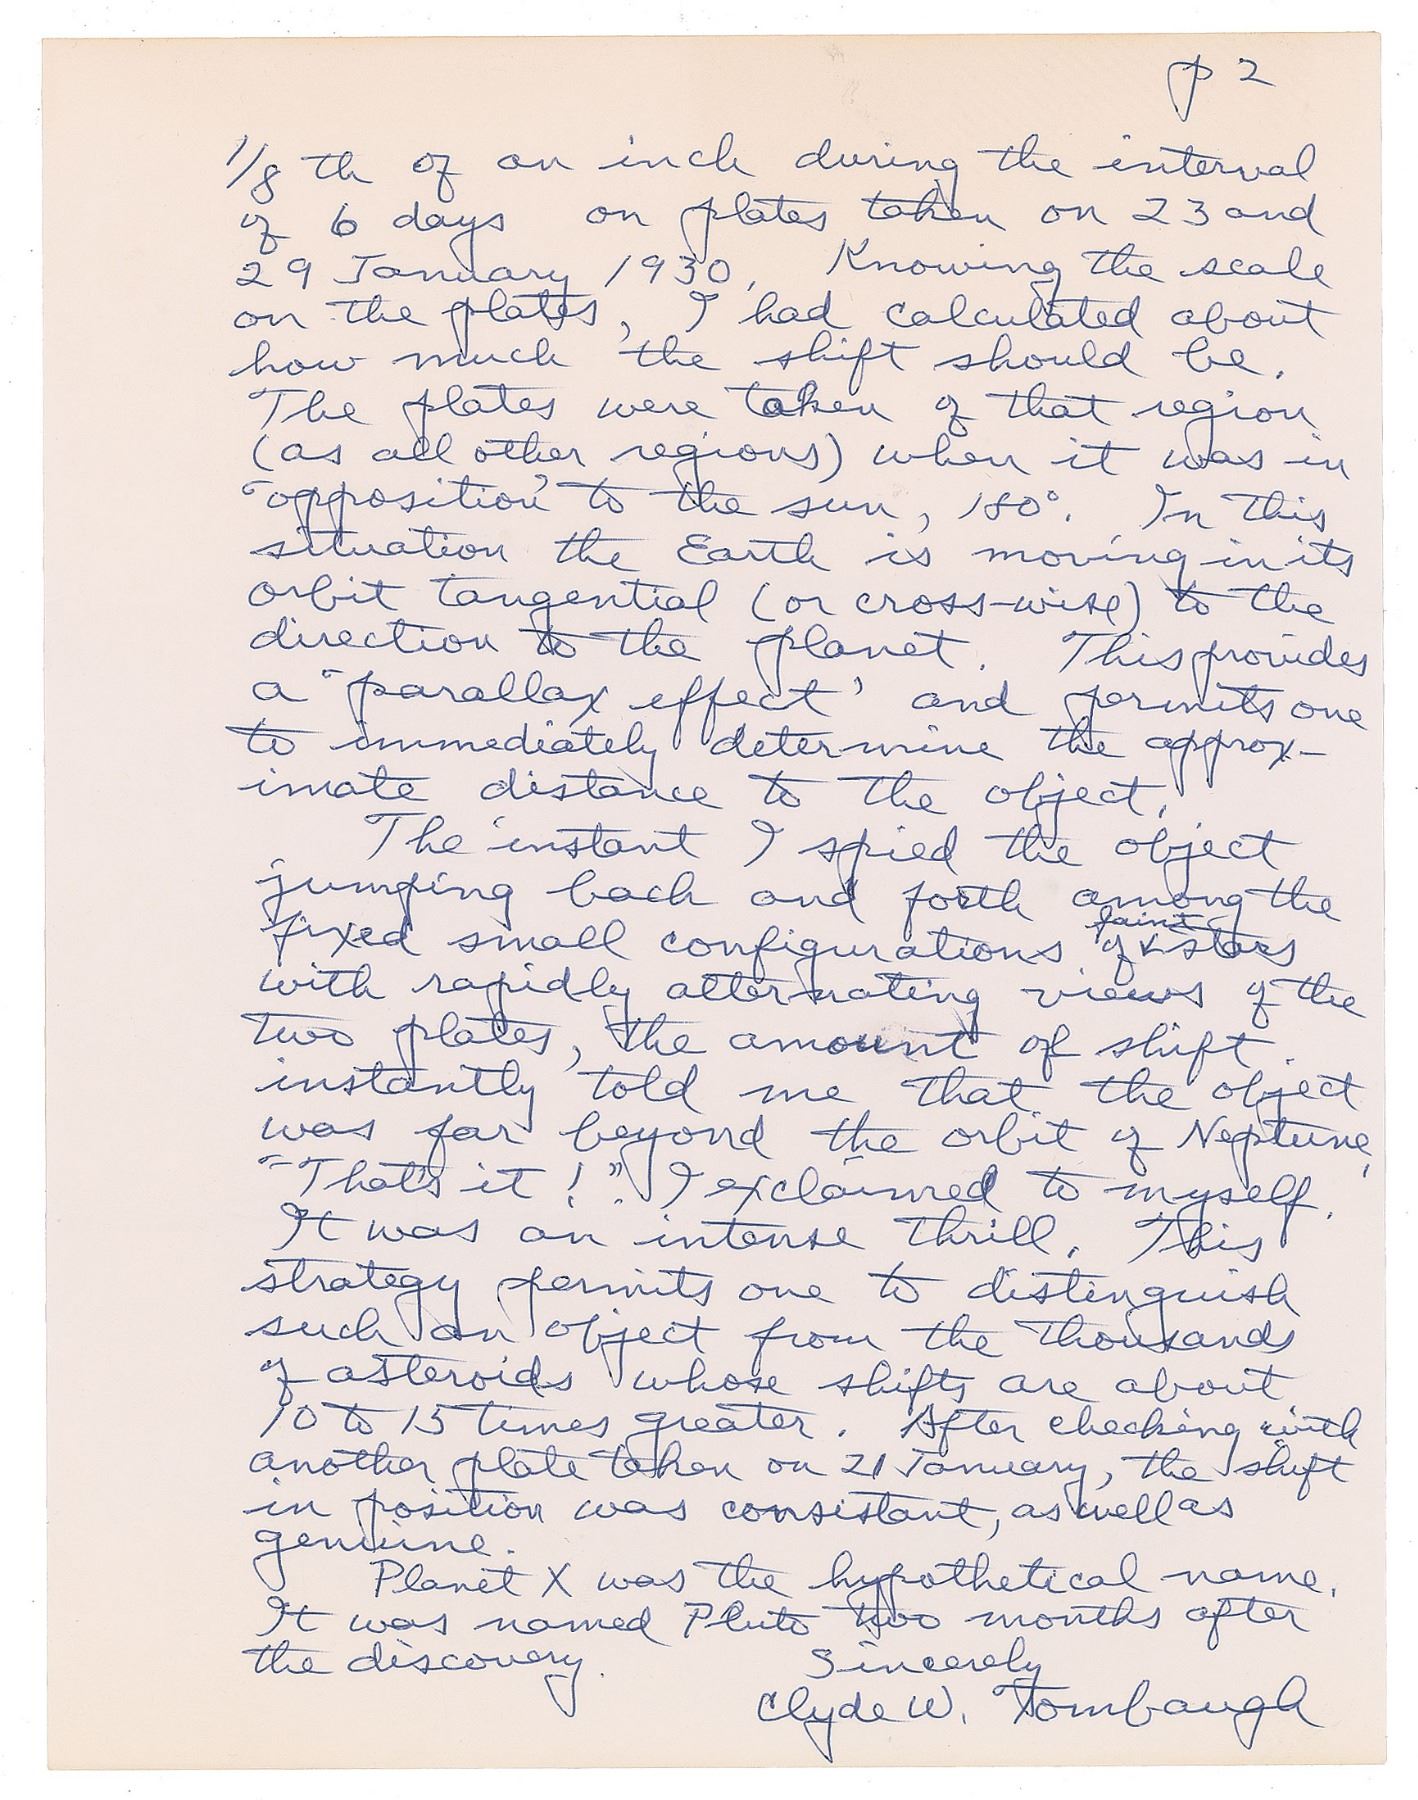 p 2
1/8 th of an inch during the interval
of 6 days on plates taken on 23 and
29 January 1930. Knowing the scale
on the plates, I had calculated about
how much the shift should be.
The plates were taken of that region
(as all other regions) when it was in
"opposition" to the sun, 180°. In this
situation the Earth is moving in its
orbit tangential (or cross-wise) to the
direction to the planet. This provides
a "parallax effect" and permits one
to immediately determine the approx-
imate distance to the object.
The instant I spied the object
jumping back and forth among the
fixed small configurations of faint stars
with rapidly alternating views of the
two plates, the amount of shift
instantly told me that the object
was far beyond the orbit of Neptune.
"That's it!" I exclaimed to myself.
It was an intense thrill. This
strategy permits one to distinguish
such an object from the thousands
of asteroids whose shifts are about
10 to 15 times greater. After checking with
another plate taken on 21 January, the shift
in position was consistant, as well as
genuine.
Planet X was the hypothetical name.
It was named Pluto two months after
the discovery.
Sincerely
Clyde W. Tombaugh